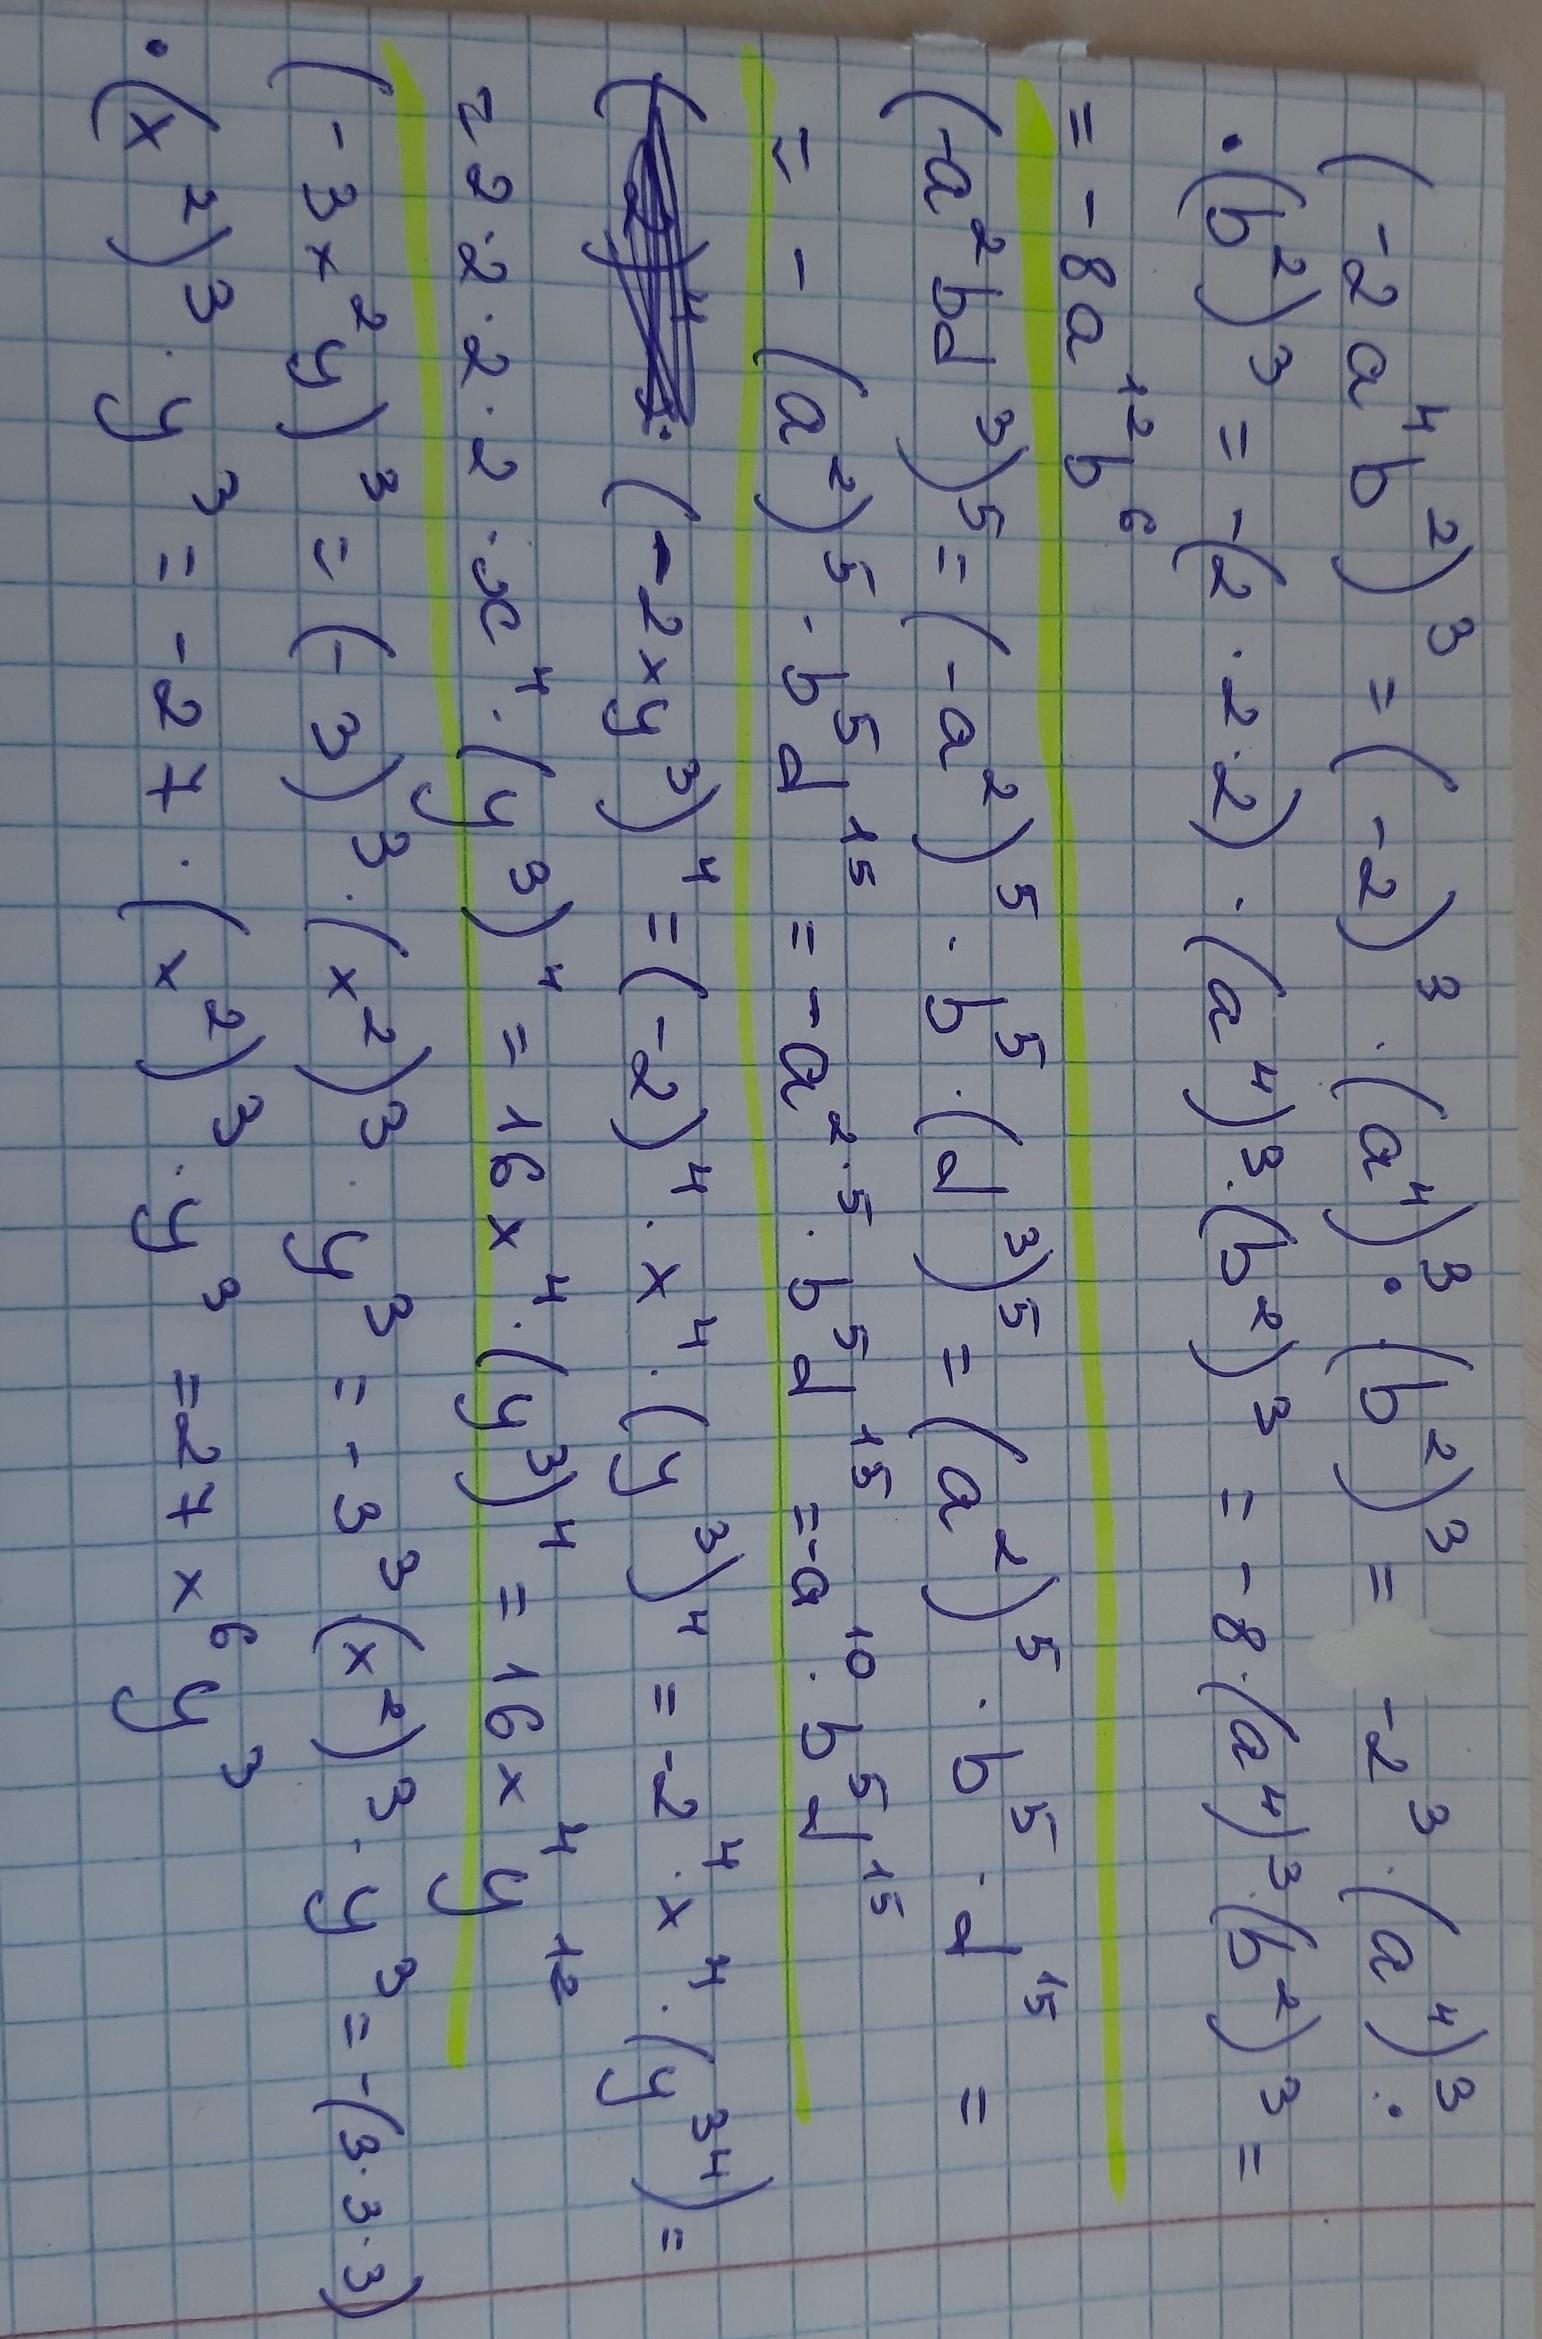 (-2a⁴b²)³ = (-2)³ · (a⁴)³ · (b²)³ = -2³ · (a⁴)³ ·
· (b²)³ = -(2 · 2 · 2) · (a⁴)³ · (b²)³ = -8 · (a⁴)³ · (b²)³ =
= -8a¹²b⁶
(-a²bd³)⁵ = (-a²)⁵ · b⁵ · (d³)⁵ = (a²)⁵ · b⁵ · d¹⁵ =
= -(a²)⁵ · b⁵d¹⁵ = -a²·⁵ · b⁵d¹⁵ = -a¹⁰ · b⁵d¹⁵
(-2xy³)⁴ = (-2)⁴ · x⁴ · (y³)⁴ = -2⁴ · x⁴ · (y³⁴) =
= 2 · 2 · 2 · 2 · x⁴ · (y³)⁴ = 16x⁴ · (y³)⁴ = 16x⁴y¹²
(-3x²y)³ = (-3)³ · (x²)³ · y³ = -3³(x²)³ · y³ = -(3·3·3)
· (x²)³ · y³ = -27 · (x²)³ · y³ = 27x⁶y³